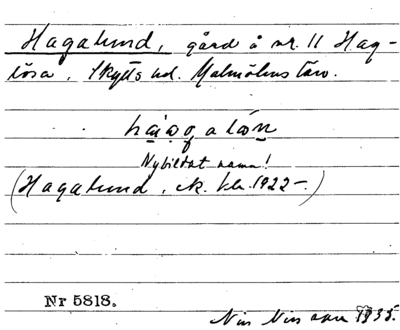 Hagalund, gård å nr. 11 Hag-
lösa, Skytts hd. Malmöhus län.
Nybildat namn!
(Hagalund, ek. kbl. 1922–.)
Nr 5818.
1935.